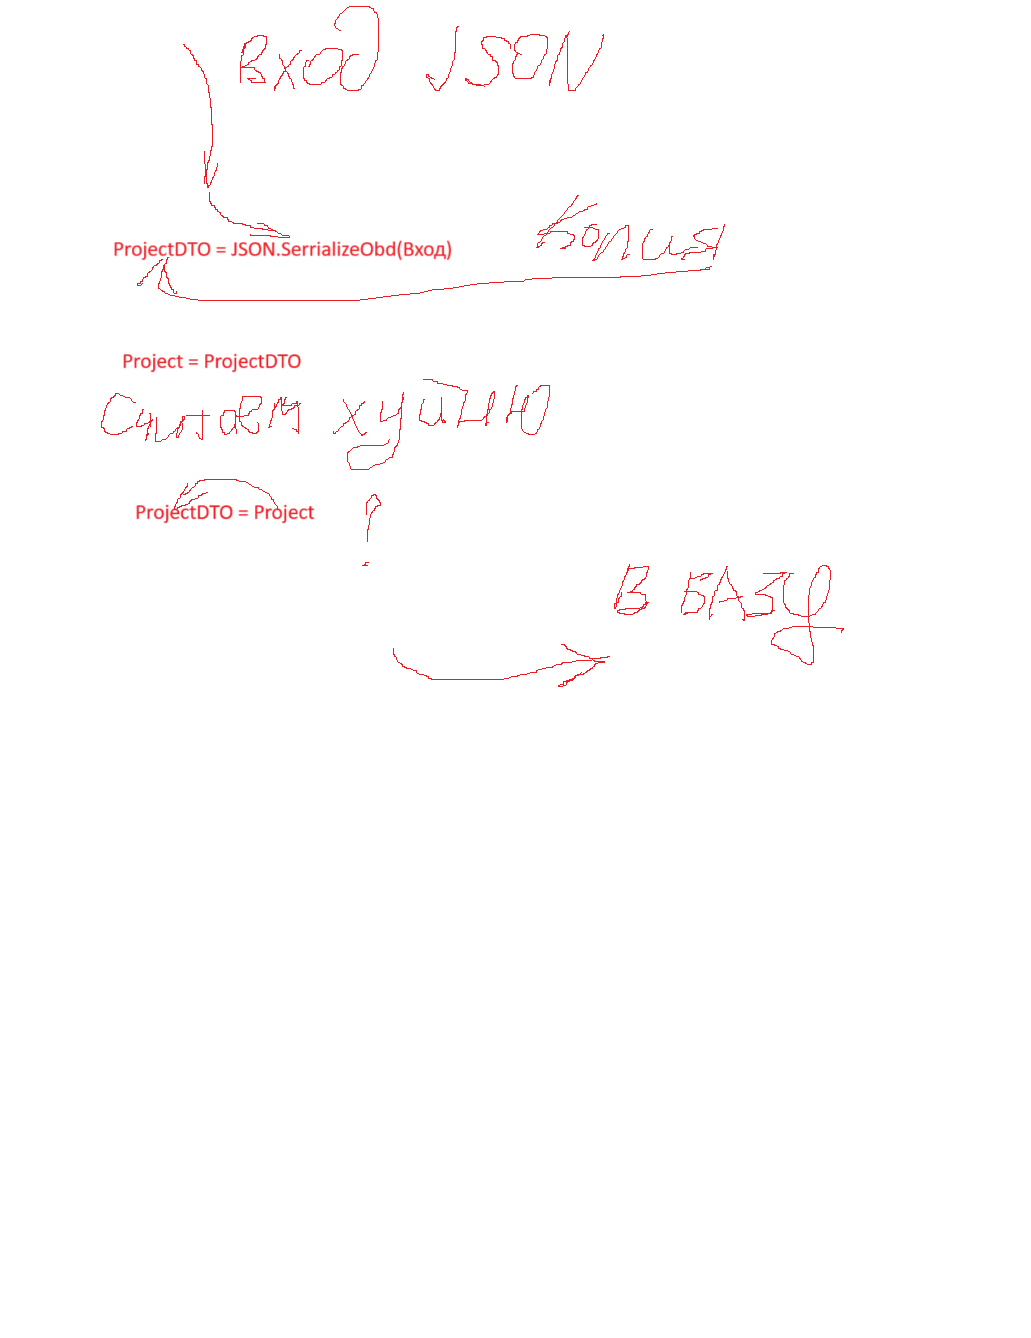 вход JSON
Копия
ProjectDTO = JSON.SerrializeObd(Вход)
Project = ProjectDTO
Считаем хуйню
ProjectDTO = Project
?
В БАЗУ